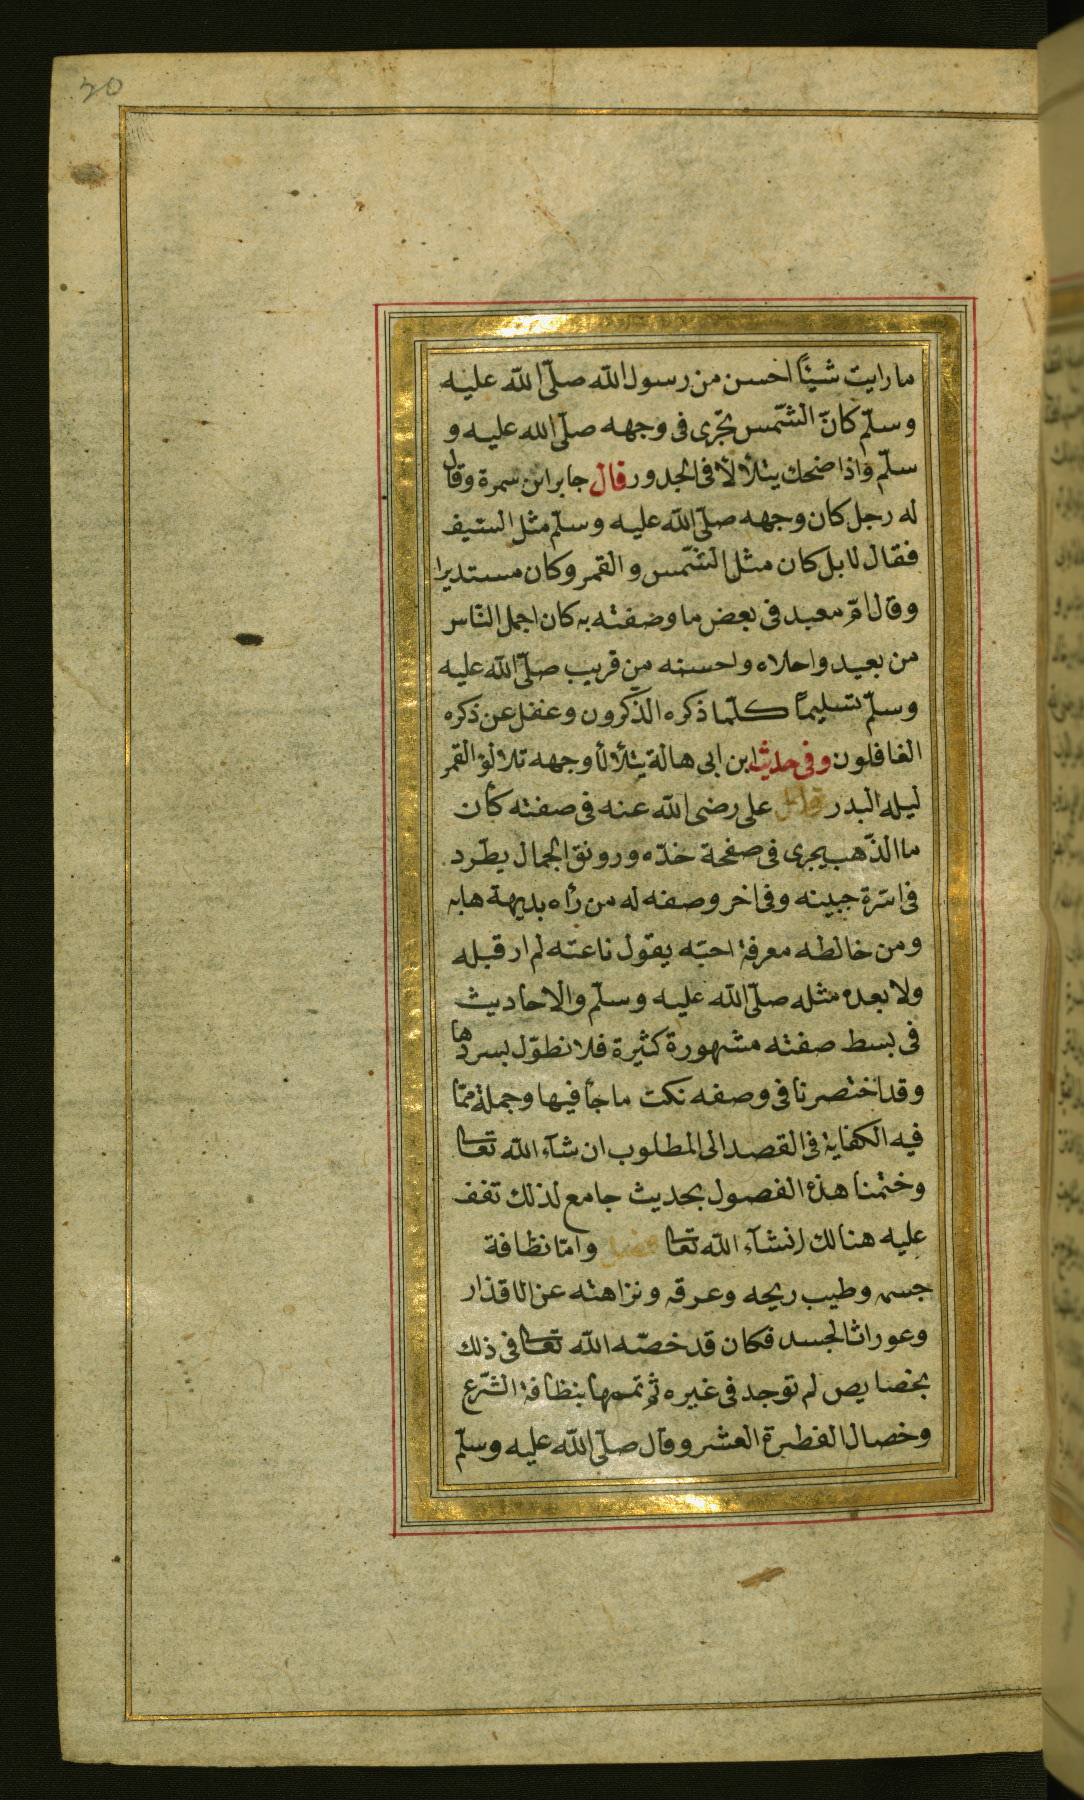 20
ما رايت شيئًا احسن من رسول الله صلّى الله عليه
وسلّم كانّ الشّمس تجرى فى وجهه صلّى الله عليه و
سلّم واذا ضحك يتلألأ فى الجدور قال جابر ابن سمرة وقال
له رجل كان وجهه صلّى الله عليه وسلّم مثل السّيف
فقال لا بل كان مثل الشّمس والقمر وكان مستديرا
وقال امّ معبد فى بعض ما وضفته به كان اجمل النّاس
من بعيد واحلاه واحسنه من قريب صلّى الله عليه
وسلّم تسليمًا كلّما ذكره الذكرون وغفل عن ذكره
الغافلون وفى حديث ابن ابى هالة يتلألأ وجهه تلالؤ القمر
ليله البدر قال على رضى الله عنه فى صفته كأن
ما الذّهب يجرى فى صفحة خدّه ورونق الجمال يطّرد
فى اسّرة جبينه وفى اخر وصفه له من رأه بديهة هابه
ومن خالطه معرفة احبّه يقول ناعته لم ار قبله
ولا بعده مثله صلّى الله عليه وسلّم والاحاديث
فى بسط صفته مشهورة كثيرة فلا نطوّل بسردها
وقد اختصرنا فى وصفه نكت ما جأ فيها وجملة ممّا
فيه الكفاية فى القصد الى المطلوب ان شآء الله تعا
وختمنا هذه الفصول بحديث جامع لذلك تقف
عليه هنالك انشآء الله تعا فصل وامّا نظافة
جسمه وطيب ريحه وعرقه ونزاهته عن الاقذار
وعوراث الجسد فكان قد خصّه الله تعا فى ذلك
بخصايص لم توجد فى غيره ثمّ تممها بنظافة الشّرع
وخصال الفطرة العشر وقال صلّى الله عليه وسلّم